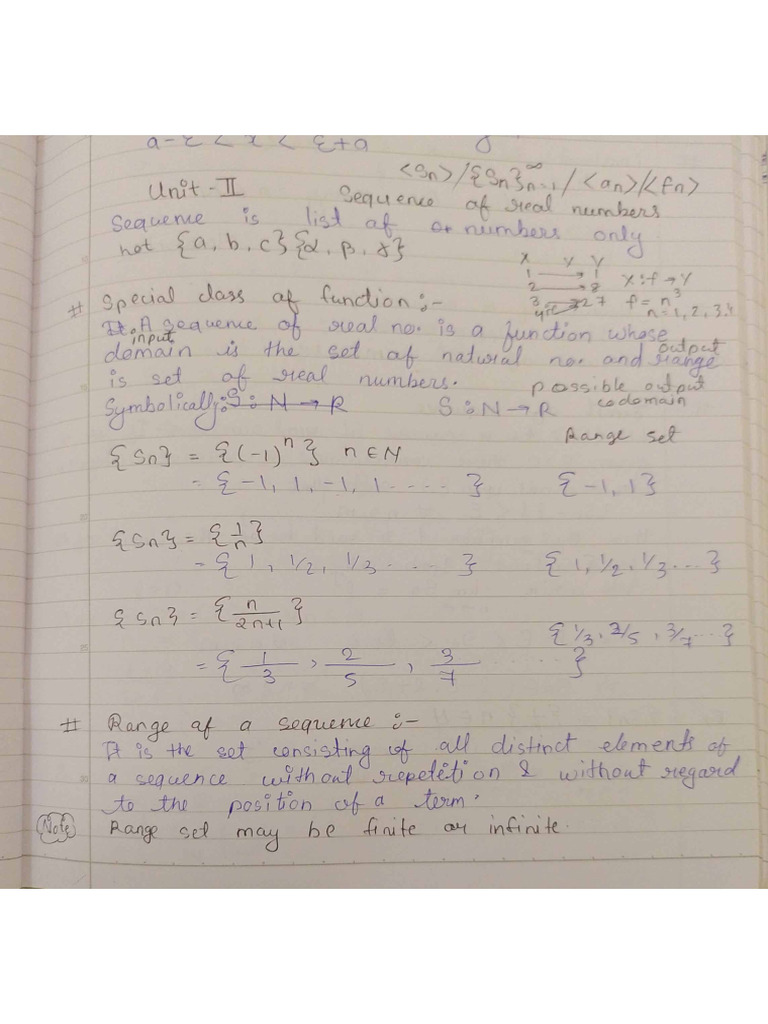 a-ε < x < ε+a
<Sn>/{Sn}∞n=1/<an>/<fn>
Unit-II Sequence of real numbers
Sequence is list of or numbers only
not {a, b, c} {α, β, γ}
X Y Y
1 → 1
2 → 8
3 → 27
X:f→Y
f = n³
n = 1, 2, 3, 4
# Special class of function :-
It. A sequence of real no. is a function whose
input output
domain is the set of natural no. and range
is set of real numbers. possible output
codomain
Symbolically: S:N→R S:N→R
Range set
{Sn} = {(-1)ⁿ} n∈N
= {-1, 1, -1, 1 ..... } {-1, 1}
{Sn} = {1/n}
= {1, 1/2, 1/3 ..... } {1, 1/2, 1/3 ...}
{Sn} = {n/2n+1}
{1/3, 2/5, 3/7 ...}
= {1/3, 2/5, 3/7 ..... }
# Range of a sequence :-
It is the set consisting of all distinct elements of
a sequence without repetetion & without regard
to the position of a term.
Note Range set may be finite or infinite.